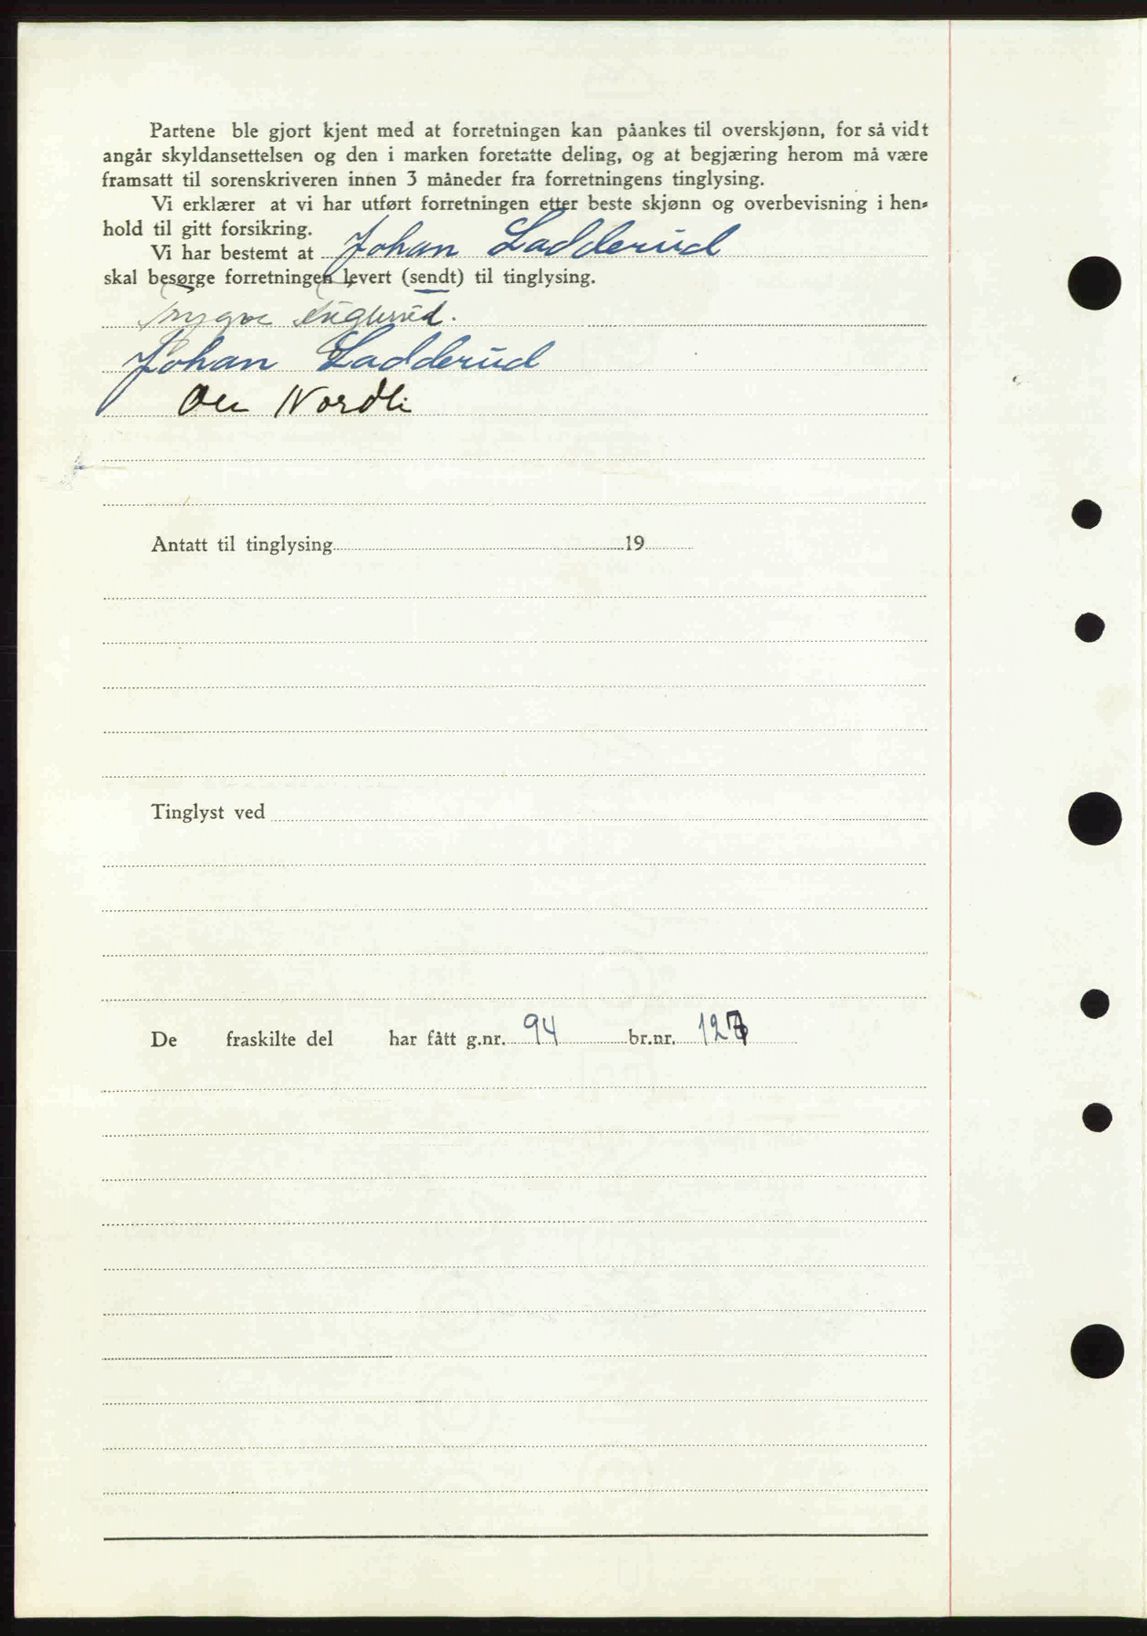 Partene ble gjort kjent med at forretningen kan påankes til overskjønn, for så vidt
angår skyldansettelsen og den i marken foretatte deling, og at begjæring herom må være
framsatt til sorenskriveren innen 3 måneder fra forretningens tinglysing.
Vi erklærer at vi har utført forretningen etter beste skjønn og overbevisning i hen-
hold til gitt forsikring.
Vi har bestemt at Johan Ladderud
skal besørge forretningen levert (sendt) til tinglysing.
Trygve
Johan Ladderud
Ole Nordli
Antatt til tinglysing 19
Tinglyst ved
De fraskilte del har fått g.nr. 94 br.nr. 127